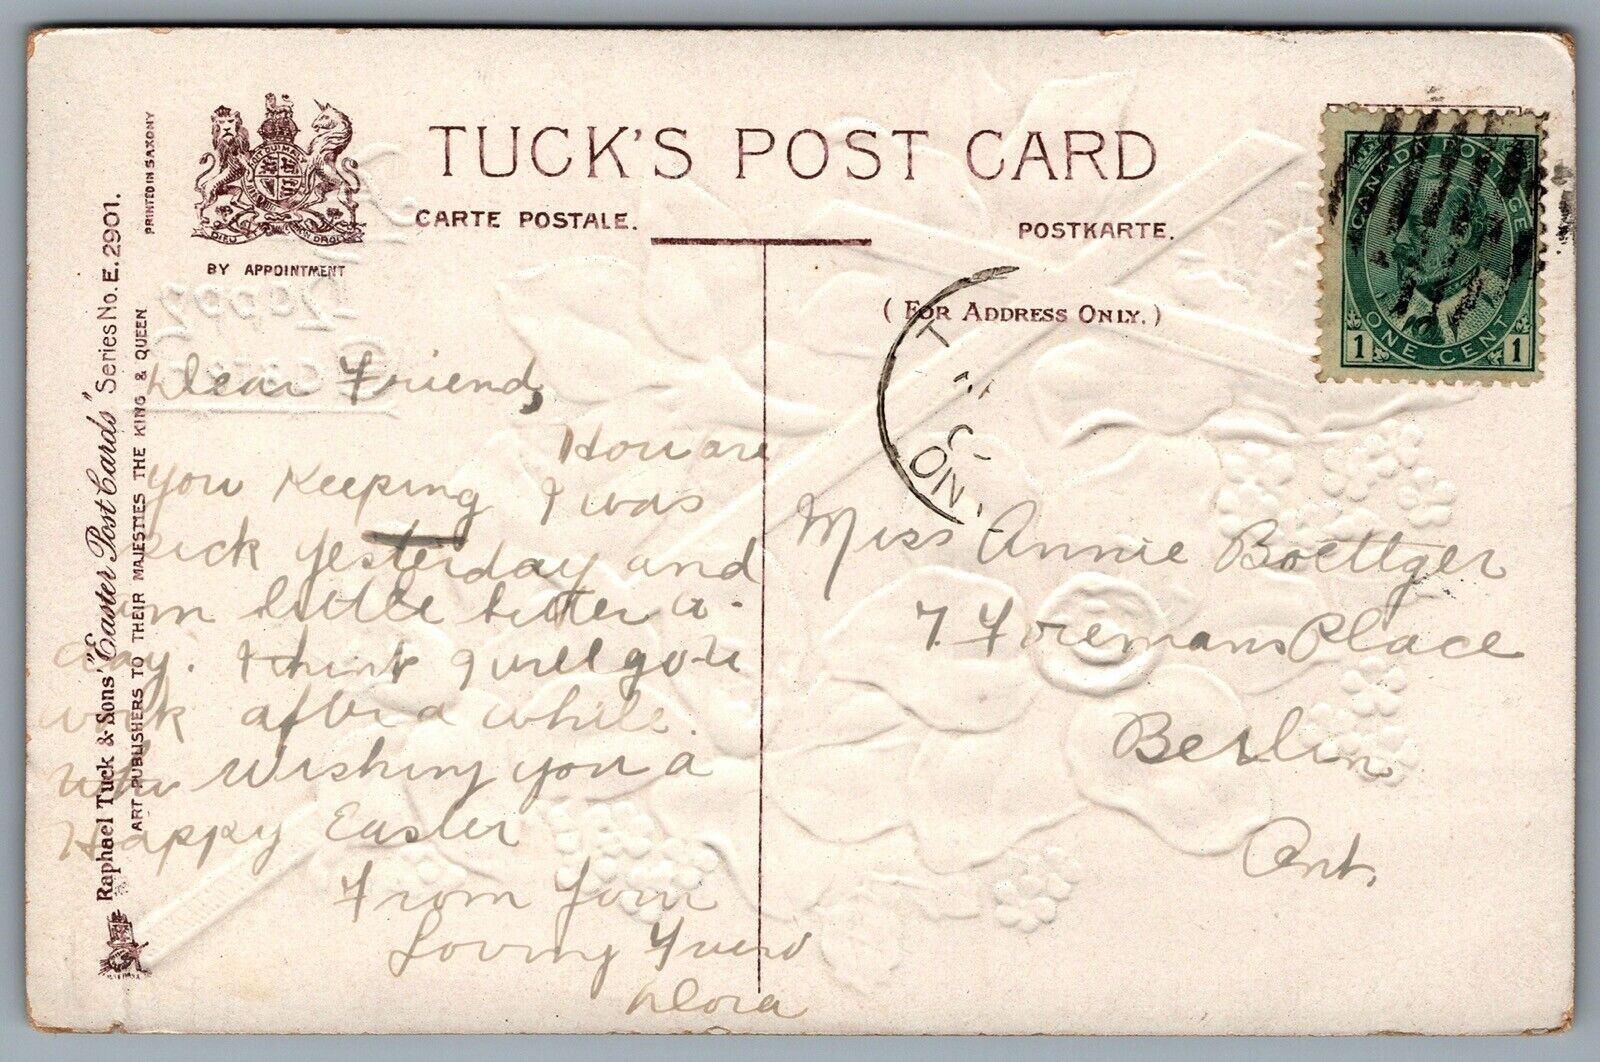 TUCK'S POST CARD
CARTE POSTALE.
POSTKARTE.
BY APPOINTMENT
(FOR ADDRESS ONLY.)
DIEU ET MON DROIT
PRINTED IN SAXONY
Raphael Tuck & Sons' "Easter Post Cards" Series No. E. 2901.
ART PUBLISHERS TO THEIR MAJESTIES THE KING & QUEEN
CANADA POSTAGE
1 ONE CENT 1
ONT
Dear Friend,
How are
you keeping I was
sick yesterday and
am little better to-
day. I think I will go to
work after a while.
Wishing you a
Happy Easter
From Your
Loving Friend
Dora
Miss Annie Boettger
7 Foremans Place
Berlin
Ont.